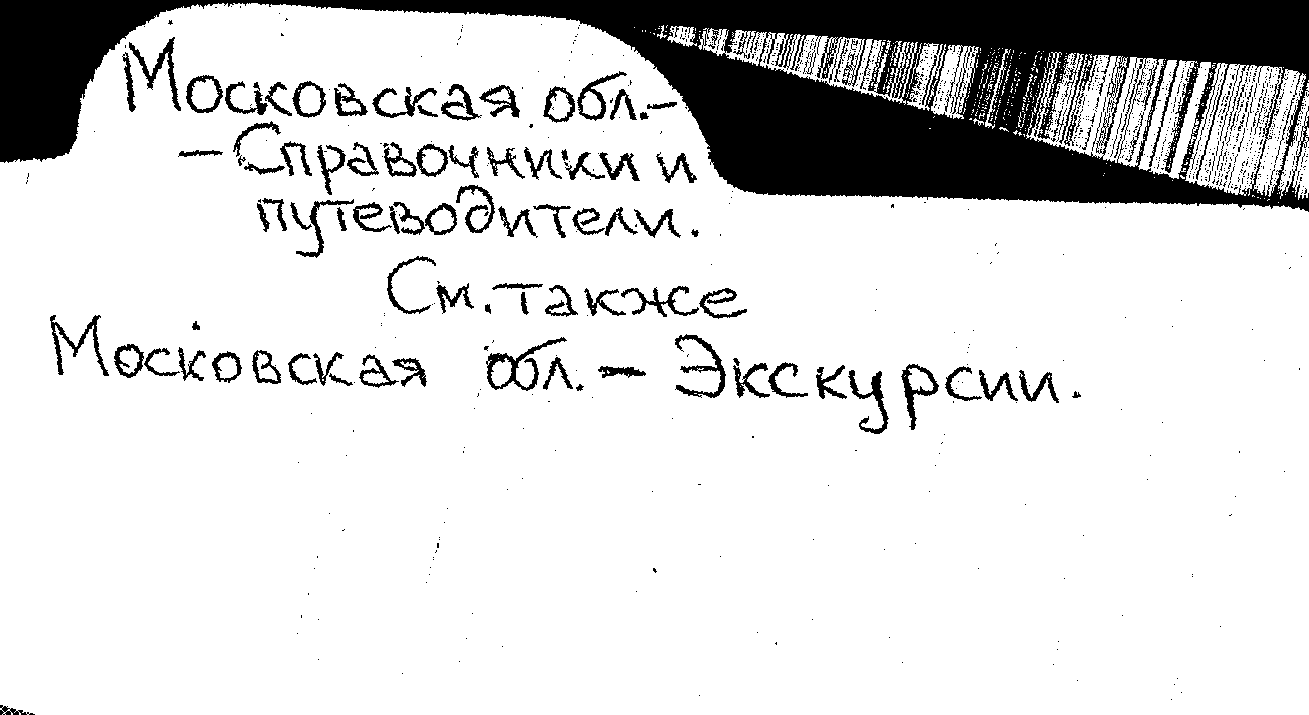 Московская обл.-
-Справочники и
путеводители.
См. также
Московская обл. - Экскурсии.